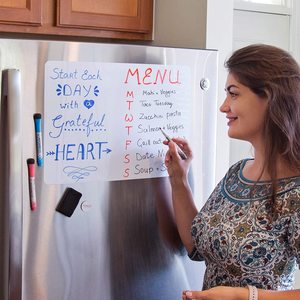 Start Each
DAY
with
a
Grateful
HEART
MENU
M Mah + Veggies
T Taco Tuesday
W Zucchini pasta
T Salmon + Veggies
F Call out
S Date
S Soup + S